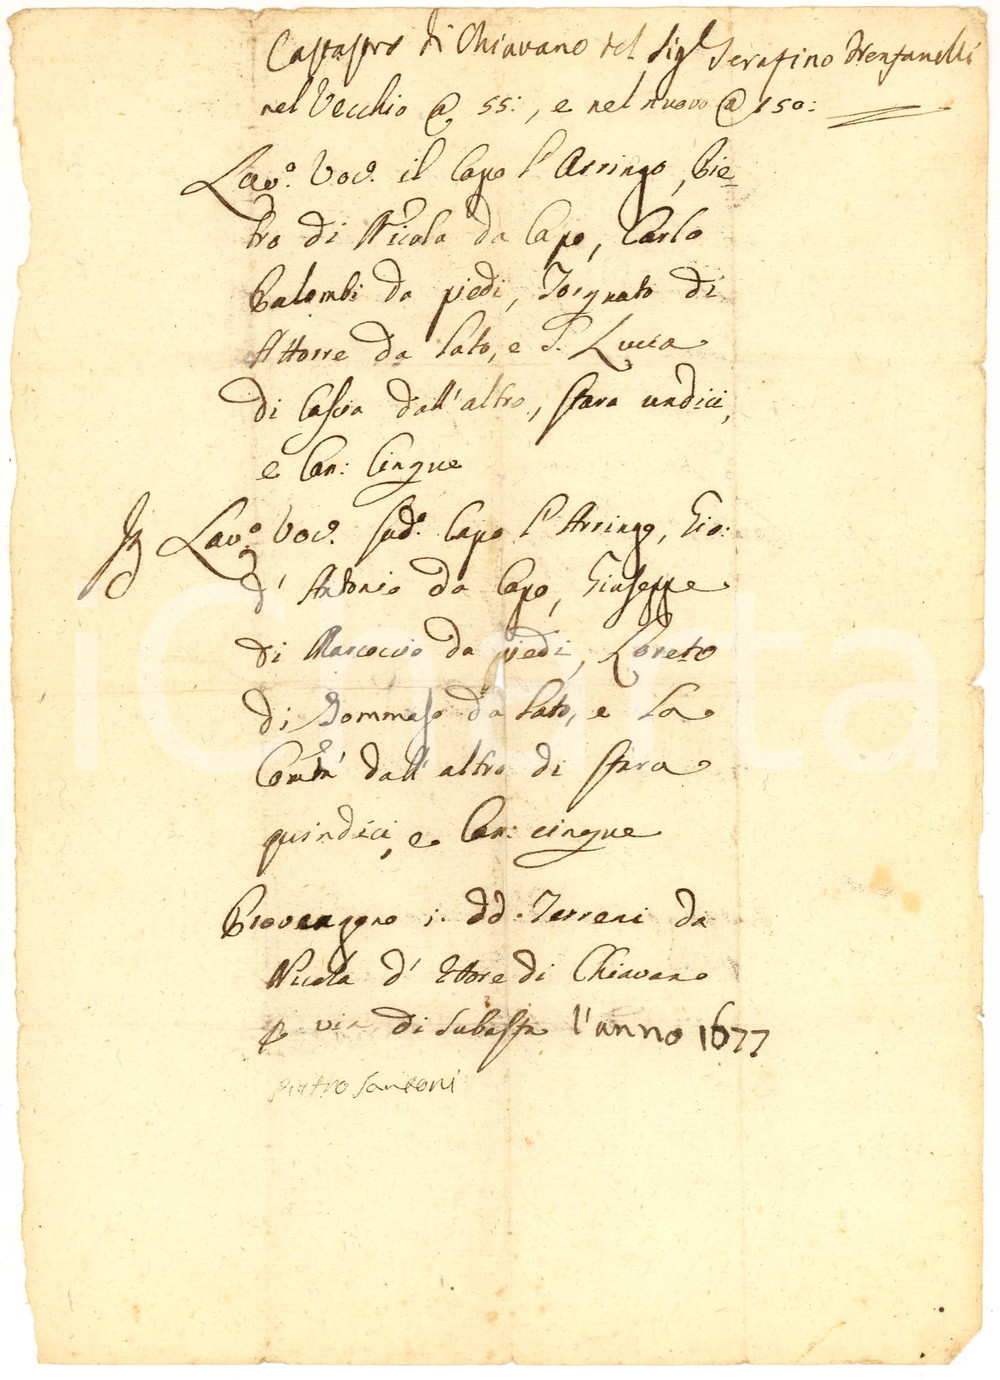 Castastro di Chiavano del Sig.r Serafino Trenfanelli
nel Vecchio @ 55:, e nel nuovo @ 150:
Lav.o Voc.o il Capo l'Arringo, Pie-
tro di Nicola da Capo, Carlo
Palombi da piedi, Torquato di
Attorre da lato, e S. Lucca
di Cascia dall'altro, stara undici,
e Can: Cinque
Lav.o Voc.o sud.o Capo l'Arringo, Gio:
d'Antonio da Capo, Giuseppe
di Marcoccio da piedi, Loreto
di Tommaso da lato, e la
Com.tà dall'altro di stara
quindici, e Can: cinque
Provengono i dd. Terreni da
Nicola d'Ettore di Chiavano
p via di Subasta l'anno 1677
pietro Santoni